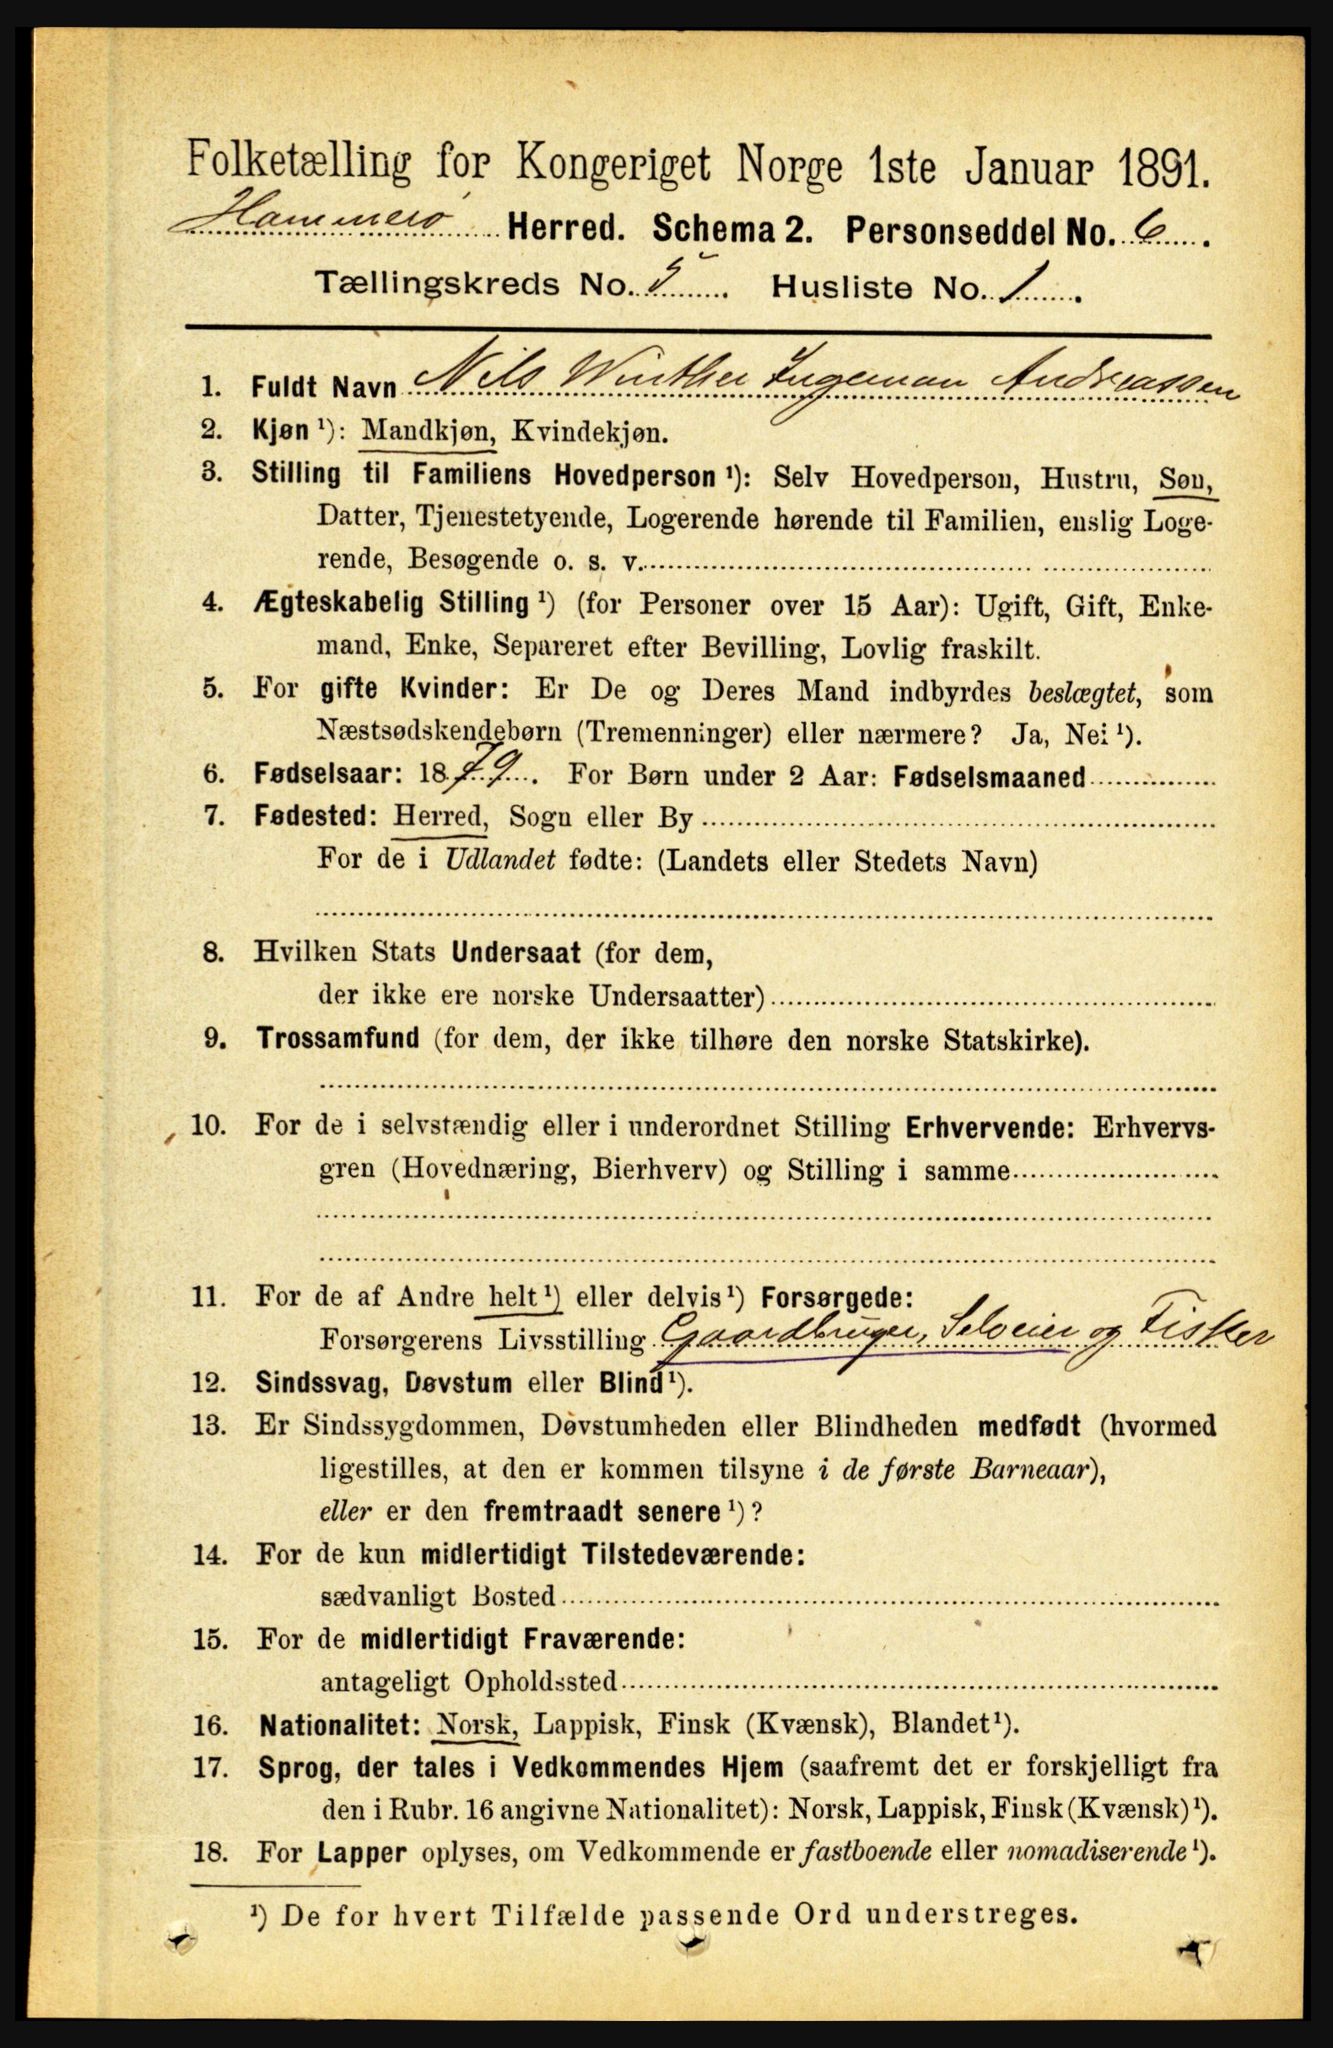 Folketælling for Kongeriget Norge 1ste Januar 1891.
Hammerø Herred. Schema 2. Personseddel No. 6.
Tællingskreds No. 5. Husliste No. 1.
1. Fuldt Navn Nils Winther Ingeman Andreassen
2. Kjøn ¹): Mandkjøn, Kvindekjøn.
3. Stilling til Familiens Hovedperson ¹): Selv Hovedperson, Hustru, Søn,
Datter, Tjenestetyende, Logerende hørende til Familien, enslig Loge-
rende, Besøgende o. s. v.
4. Ægteskabelig Stilling ¹) (for Personer over 15 Aar): Ugift, Gift, Enke-
mand, Enke, Separeret efter Bevilling, Lovlig fraskilt.
5. For gifte Kvinder: Er De og Deres Mand indbyrdes beslægtet, som
Næstsødskendebørn (Tremenninger) eller nærmere? Ja, Nei ¹).
6. Fødselsaar: 1879. For Børn under 2 Aar: Fødselsmaaned
7. Fødested: Herred, Sogn eller By
For de i Udlandet fødte: (Landets eller Stedets Navn)
8. Hvilken Stats Undersaat (for dem,
der ikke ere norske Undersaatter)
9. Trossamfund (for dem, der ikke tilhøre den norske Statskirke).
10. For de i selvstændig eller i underordnet Stilling Erhvervende: Erhvervs-
gren (Hovednæring, Bierhverv) og Stilling i samme
11. For de af Andre helt ¹) eller delvis ¹) Forsørgede:
Forsørgerens Livsstilling Gaardbruger, Selveier og Fisker
12. Sindssvag, Døvstum eller Blind ¹).
13. Er Sindssygdommen, Døvstumheden eller Blindheden medfødt (hvormed
ligestilles, at den er kommen tilsyne i de første Barneaar),
eller er den fremtraadt senere ¹)?
14. For de kun midlertidigt Tilstedeværende:
sædvanligt Bosted
15. For de midlertidigt Fraværende:
antageligt Opholdssted
16. Nationalitet: Norsk, Lappisk, Finsk (Kvænsk), Blandet ¹).
17. Sprog, der tales i Vedkommendes Hjem (saafremt det er forskjelligt fra
den i Rubr. 16 angivne Nationalitet): Norsk, Lappisk, Finsk (Kvænsk) ¹).
18. For Lapper oplyses, om Vedkommende er fastboende eller nomadiserende ¹).
¹) De for hvert Tilfælde passende Ord understreges.